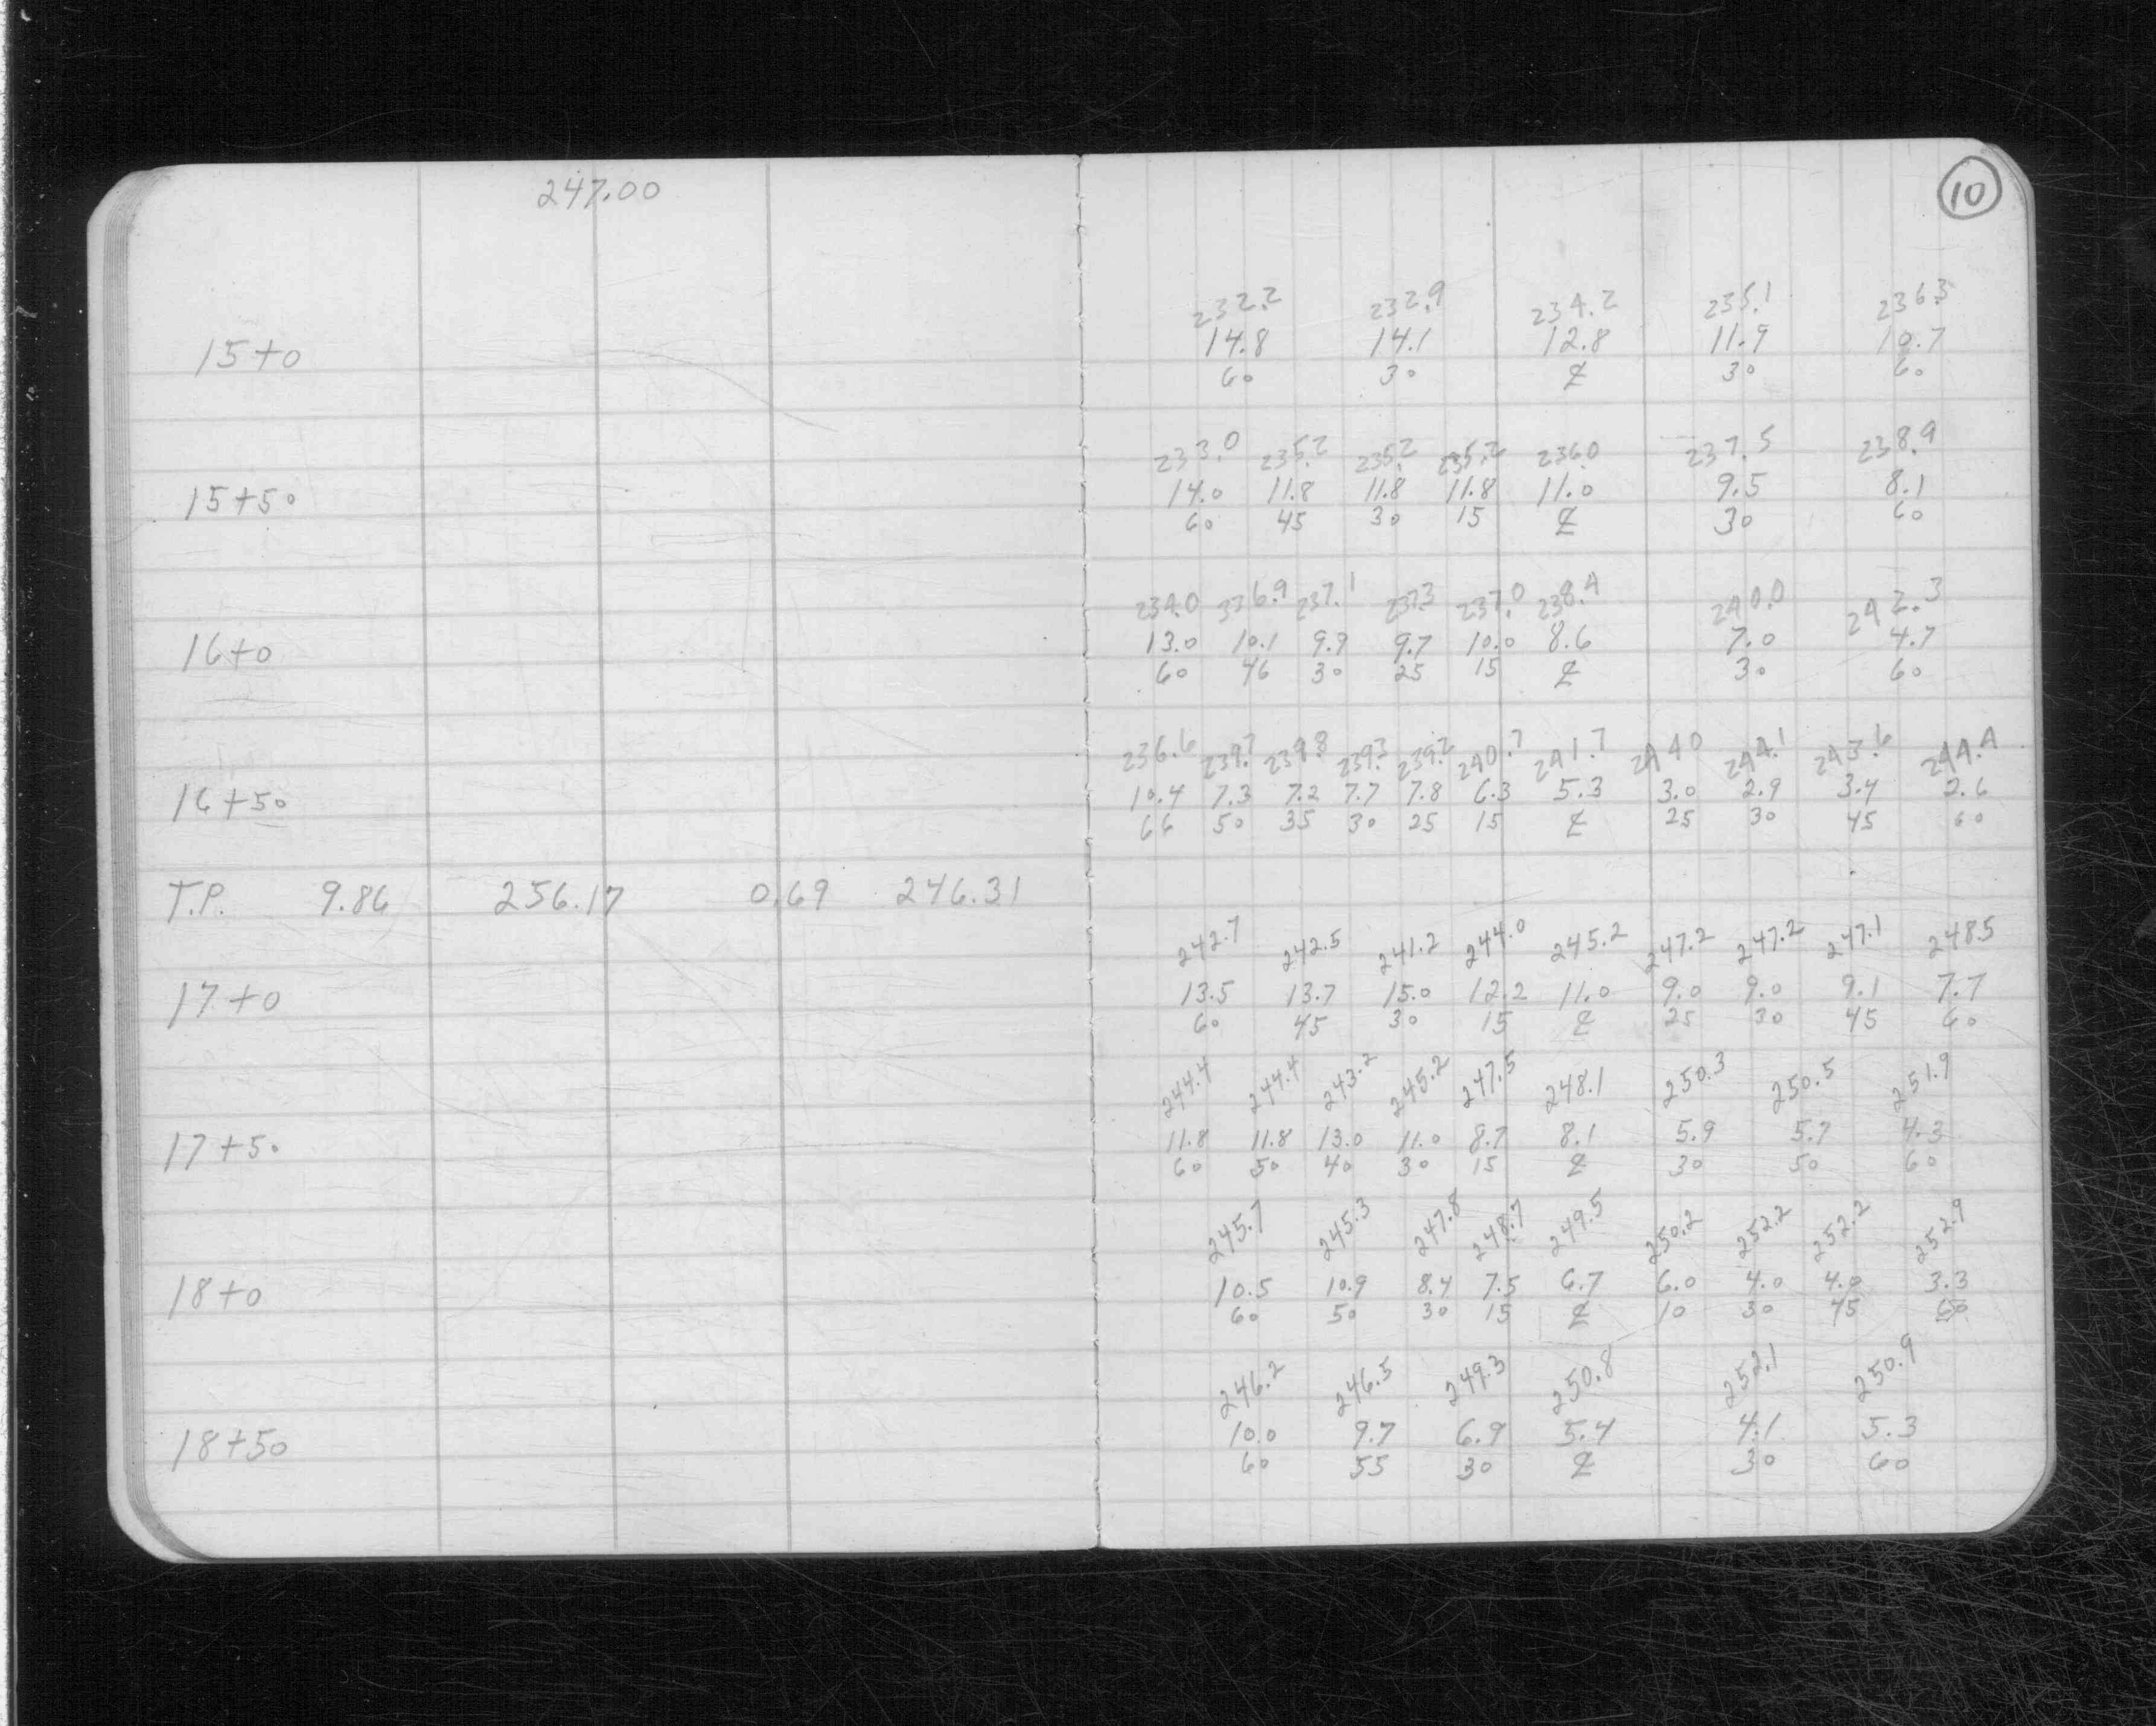 247.00
10
232.2 232.9 234.2 235.1 236.3
15+0 14.8 14.1 12.8 11.9 10.7
60 30 ℄ 30 60
233.0 235.2 235.2 235.2 236.0 237.5 238.9
15+50 14.0 11.8 11.8 11.8 11.0 9.5 8.1
60 45 30 15 ℄ 30 60
234.0 336.9 237.1 237.3 237.0 238.4 240.0 242.3
16+0 13.0 10.1 9.9 9.7 10.0 8.6 7.0 4.7
60 46 30 25 15 ℄ 30 60
236.6 239.7 239.8 239.3 239.2 240.7 241.7 244.0 244.1 243.6 244.4
16+50 10.4 7.3 7.2 7.7 7.8 6.3 5.3 3.0 2.9 3.4 2.6
66 50 35 30 25 15 ℄ 25 30 45 60
T.P. 9.86 256.17 0.69 246.31
242.7 242.5 241.2 244.0 245.2 247.2 247.2 247.1 248.5
17+0 13.5 13.7 15.0 12.2 11.0 9.0 9.0 9.1 7.7
60 45 30 15 ℄ 25 30 45 60
244.4 244.4 243.2 245.2 247.5 248.1 250.3 250.5 251.9
17+50 11.8 11.8 13.0 11.0 8.7 8.1 5.9 5.7 4.3
60 50 40 30 15 ℄ 30 50 60
245.7 245.3 247.8 248.7 249.5 250.2 252.2 252.2 252.9
18+0 10.5 10.9 8.4 7.5 6.7 6.0 4.0 4.0 3.3
60 50 30 15 ℄ 10 30 45 60
246.2 246.5 249.3 250.8 252.1 250.9
18+50 10.0 9.7 6.9 5.4 4.1 5.3
60 55 30 ℄ 30 60